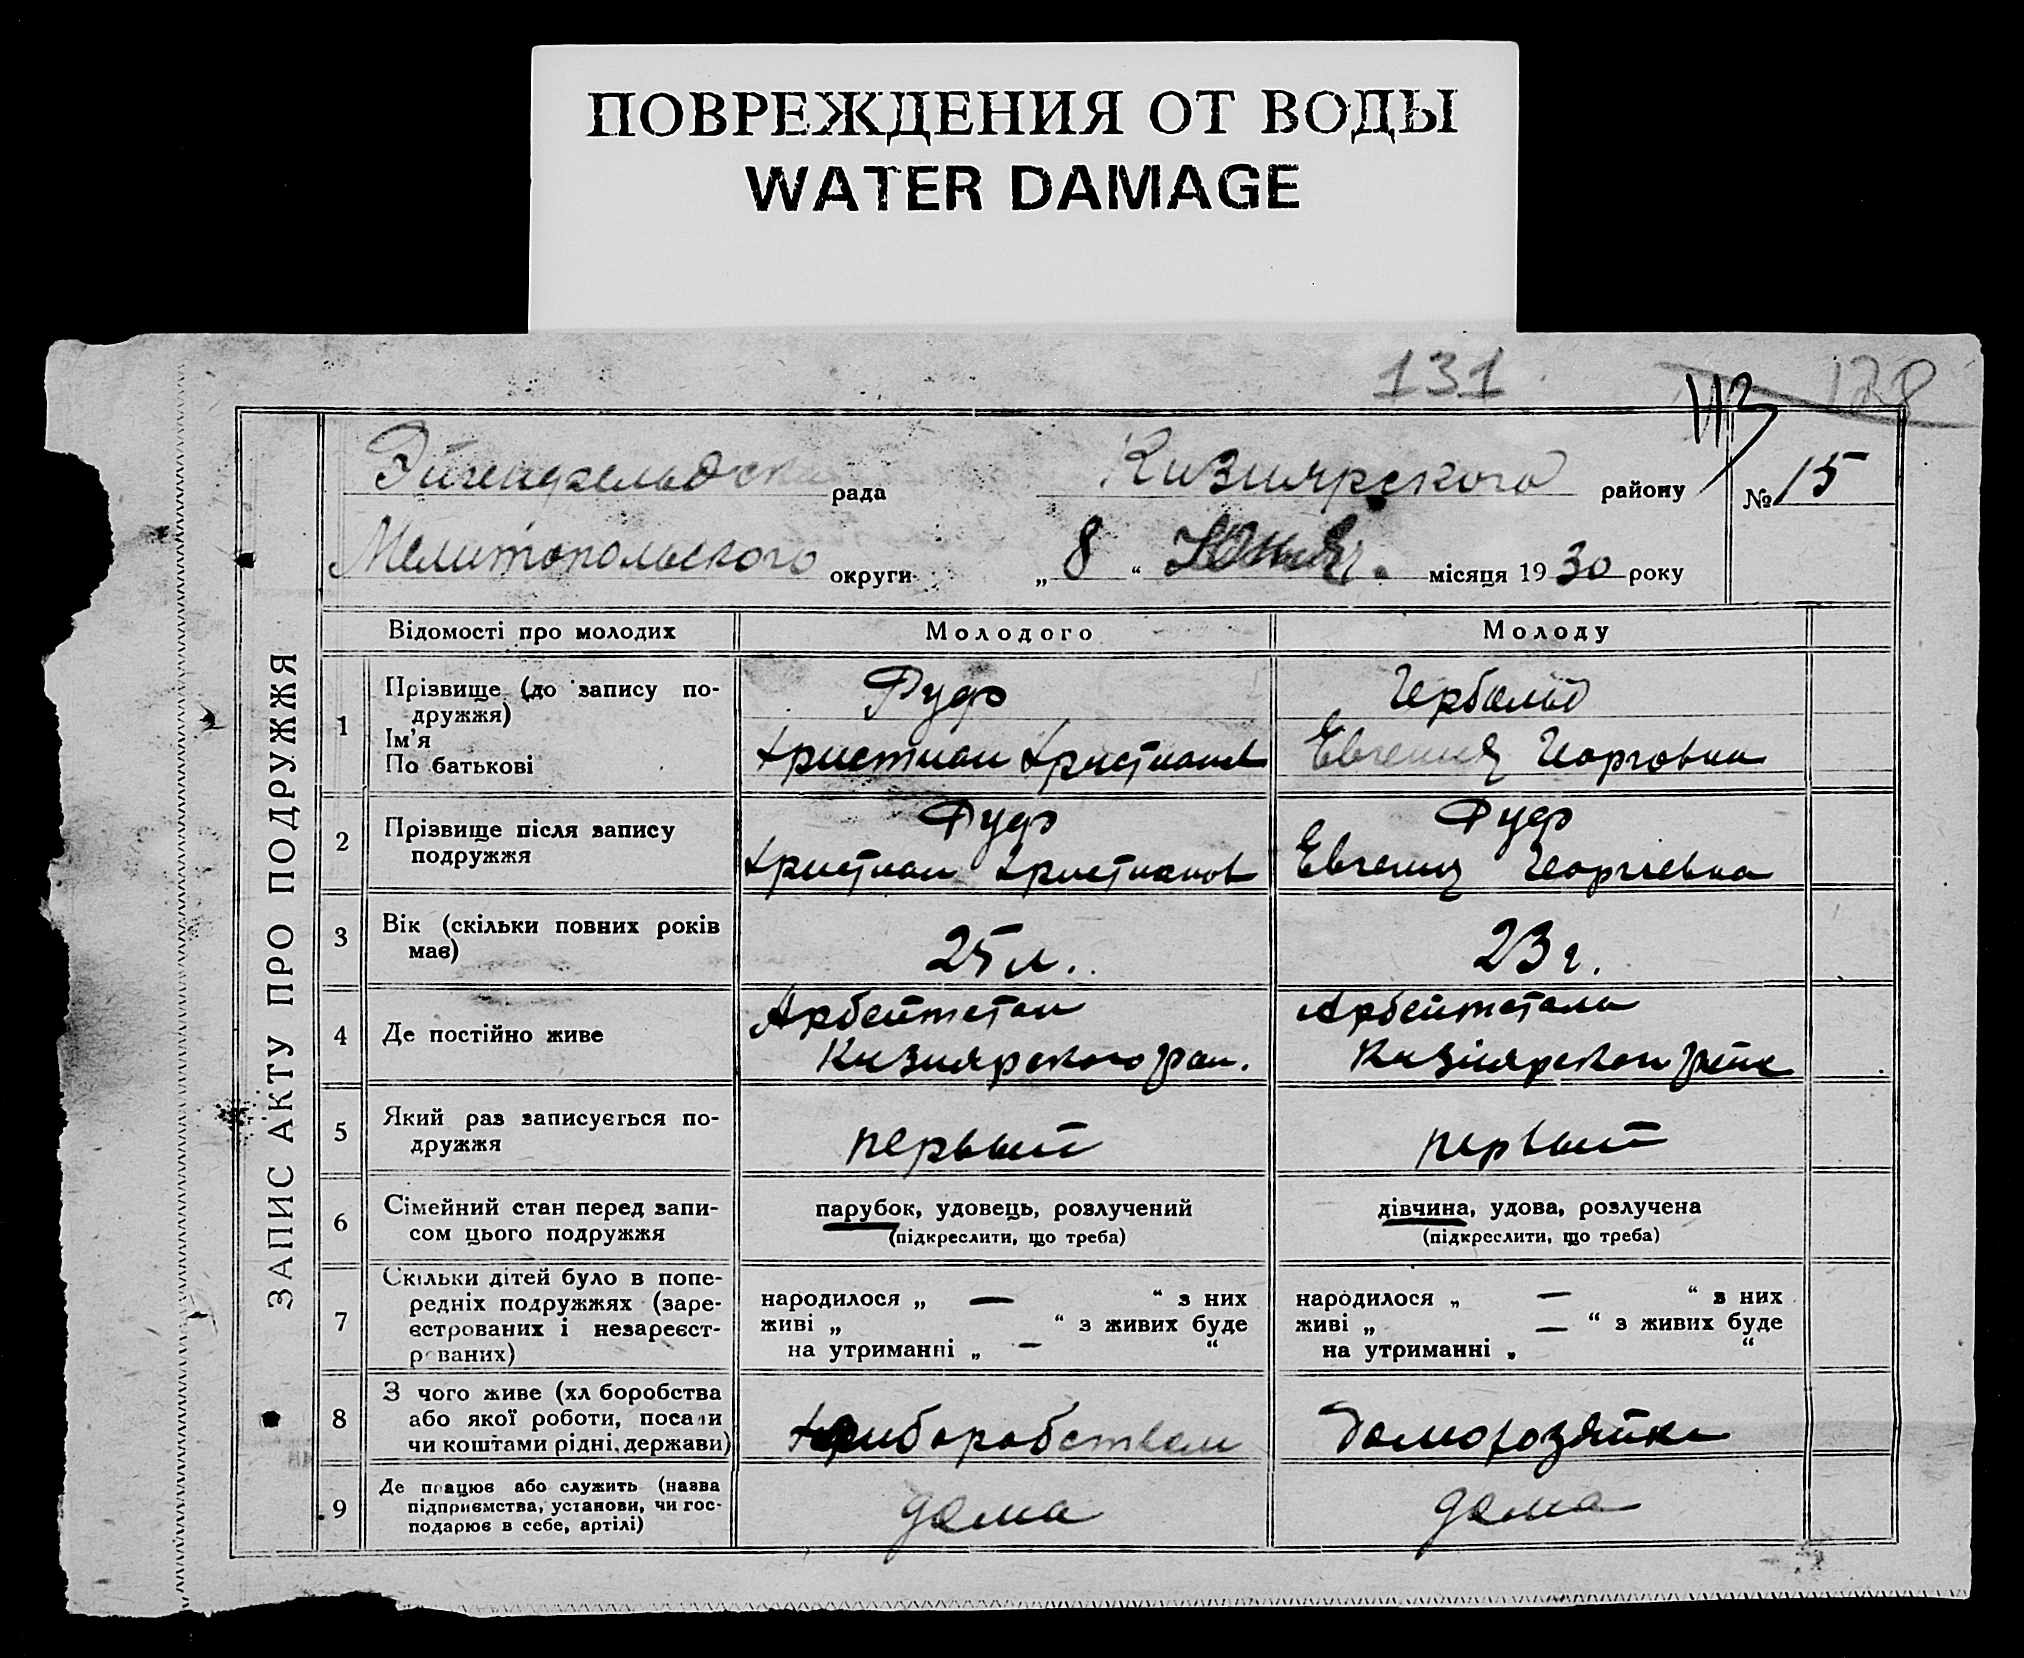 ПОВРЕЖДЕНИЯ ОТ ВОДЫ
WATER DAMAGE
131 128
113
Эйгенфельдска рада Кизиярского района № 15
Мелитопольского округи „8“ Юния. місяця 1930 року
ЗАПИС АКТУ ПРО ПОДРУЖЖЯ
Відомості про молодих Молодого Молоду
1 Прізвище (до запису по-
дружжя)
Ім'я
По батькові
Фуф
Христиан Христианов
Гербольд
Евгения Георговна
2 Прізвище після запису
подружжя
Фуф
Христиан Христианов
Фуф
Евгения Георгиевна
3 Вік (скільки повних років
має)
25 л.
23 г.
4 Де постійно живе
Арбейтсталь
Кизиярского рай.
Арбейтсталь
5 Який раз записується по-
дружжя
первый
первый
6 Сімейний стан перед запи-
сом цього подружжя
парубок, удовець, розлучений
(підкреслити, що треба)
дівчина, удова, розлучена
(підкреслити, що треба)
7 Скільки дітей було в попе-
редніх подружжях (заре-
єстрованих і незареєст-
рованих)
народилося „ — “ з них
живі „ “ з живих буде
на утриманні „ — “
народилося „ — “ з них
живі „ — “ з живих буде
на утриманні „ “
8 З чого живе (хлборобства
або якої роботи, посади
чи коштами рідні, держави)
домохозяйка
9 Де працює або служить (назва
підприємства, установи, чи гос-
подарює в себе, артілі)
дома
дома